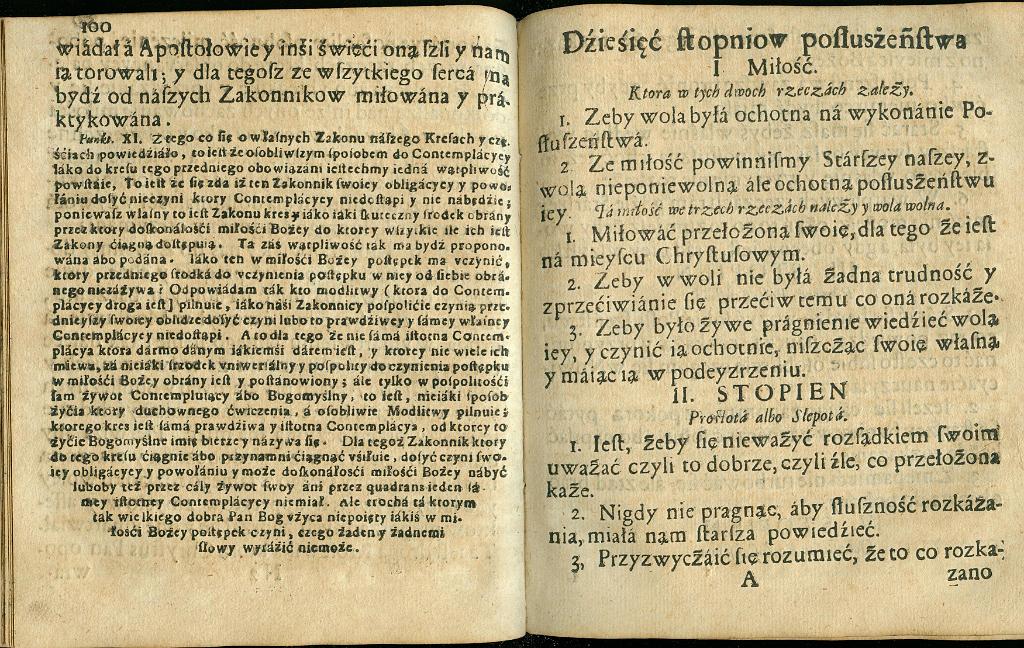 100
wiádałá Apostołowie y inśi święci oną szli y nam
ią torowali; y dla tegosz ze wszytkiego sercá má
bydź od nászych Zakonnikow miłowána y prá-
ktykowána.
Punkt. XI. Z tego co się o własnych Zakonu nászego Kresach y czę-
śćiach powiedziáło, to iest że osobliwszym sposobem do Contemplácyey
iako do kresu tego przedniego obowiązani iestechmy iedná wątpliwość
powstáie, To iest że się zda iż ten Zakonnik swoiey obligácyey y powo-
łániu dosyć nieczyni ktory Contemplácyey niedostąpi y nie nabędźie;
ponieważ własny to iest Zakonu kres y iáko iáki skuteczny środek obrány
przez ktory doskonáłośći miłośći Bożey do ktorey wszytkie ile ich iest
Zakony ćiągną dostępuią. Ta záś wątpliwość tak ma bydź propono-
wána ábo podána. Iáko ten w miłośći Bożey postępek ma vczynić,
ktory przedniego środká do vczynienia postępku w niey od siebie obrá-
nego niezáżywa? Odpowiádam ták kto modlitwy (ktora do Contem-
plácyey droga iest) pilnuie, iáko náśi Zakonnicy pospolićie czynią prze-
dnieyszy swoiey oblidze dosyć czyni lubo to prawdźiwey y sámey własney
Contemplácyey niedostąpi. A to dla tego że nie sámá istotna Contem-
plácya ktora dármo dánym iákiemśi dárem iest, y ktorey nie wiele ich
miewa, zá nieiáki środek vniwersálny y pospolity do czynienia postępku
w miłośći Bożey obrány iest y postánowiony; ále tylko w pospolitośći
sam żywot Contempluiący ábo Bogomyślny, to iest, nieiáki sposob
życia ktory duchownego ćwiczenia, á osobliwie Modlitwy pilnuie;
ktorego kres iest sámá prawdźiwa y istotna Contemplácya, od ktorey to
życie Bogomyślne imię bierze y názywa się. Dla tegoż Zakonnik ktory
do tego kresu ćiągnie ábo przynamni ćiągnąć vśiłuie, dosyć czyni swo-
iey obligácyey y powołániu y może doskonáłośći miłośći Bożey nábyć
luboby też przez cáły żywot swoy áni przez quadrans ieden sá-
mey istotney Contemplácyey niemiał. Ale trochá tá ktorym
tak wielkiego dobra Pan Bog vżyca niepoięty iákiś w mi-
łośći Bożey postępek czyni, czego żaden y żadnemi
słowy wyráźić niemoże.
Dźieśięć stopniow posłuszeństwa
I Miłość.
Ktora w tych dwoch rzeczách zależy.
1. Zeby wola byłá ochotna ná wykonánie Po-
słuszeństwá.
2 Ze miłość powinnismy Stárszey naszey, z-
wolą nieponiewolną ale ochotną posłuszeństwu
iey. Tá miłość we trzech rzeczách należy y wola wolna.
1. Miłowáć przełożoną swoię, dla tego że iest
ná mieyscu Chrystusowym.
2. Zeby w woli nie byłá żadna trudność y
zprzećiwiánie się przećiw temu co oná rozkáże.
3. Zeby było żywe prágnienie wiedźieć wolą
iey, y czynić ią ochotnie, niszcżąc swoię własną
y máiąc ią w podeyzrzeniu.
II. STOPIEN
Prostotá albo Slepotá.
1. Iest, żeby się nieważyć rozsądkiem swoim
uważać czyli to dobrze, czyli źle, co przełożona
każe.
2. Nigdy nie pragnąc, áby słuszność rozkáza-
nia, miałá nam starsza powiedźieć.
3, Przyzwyczáić się rozumieć, że to co rozka-
A zano